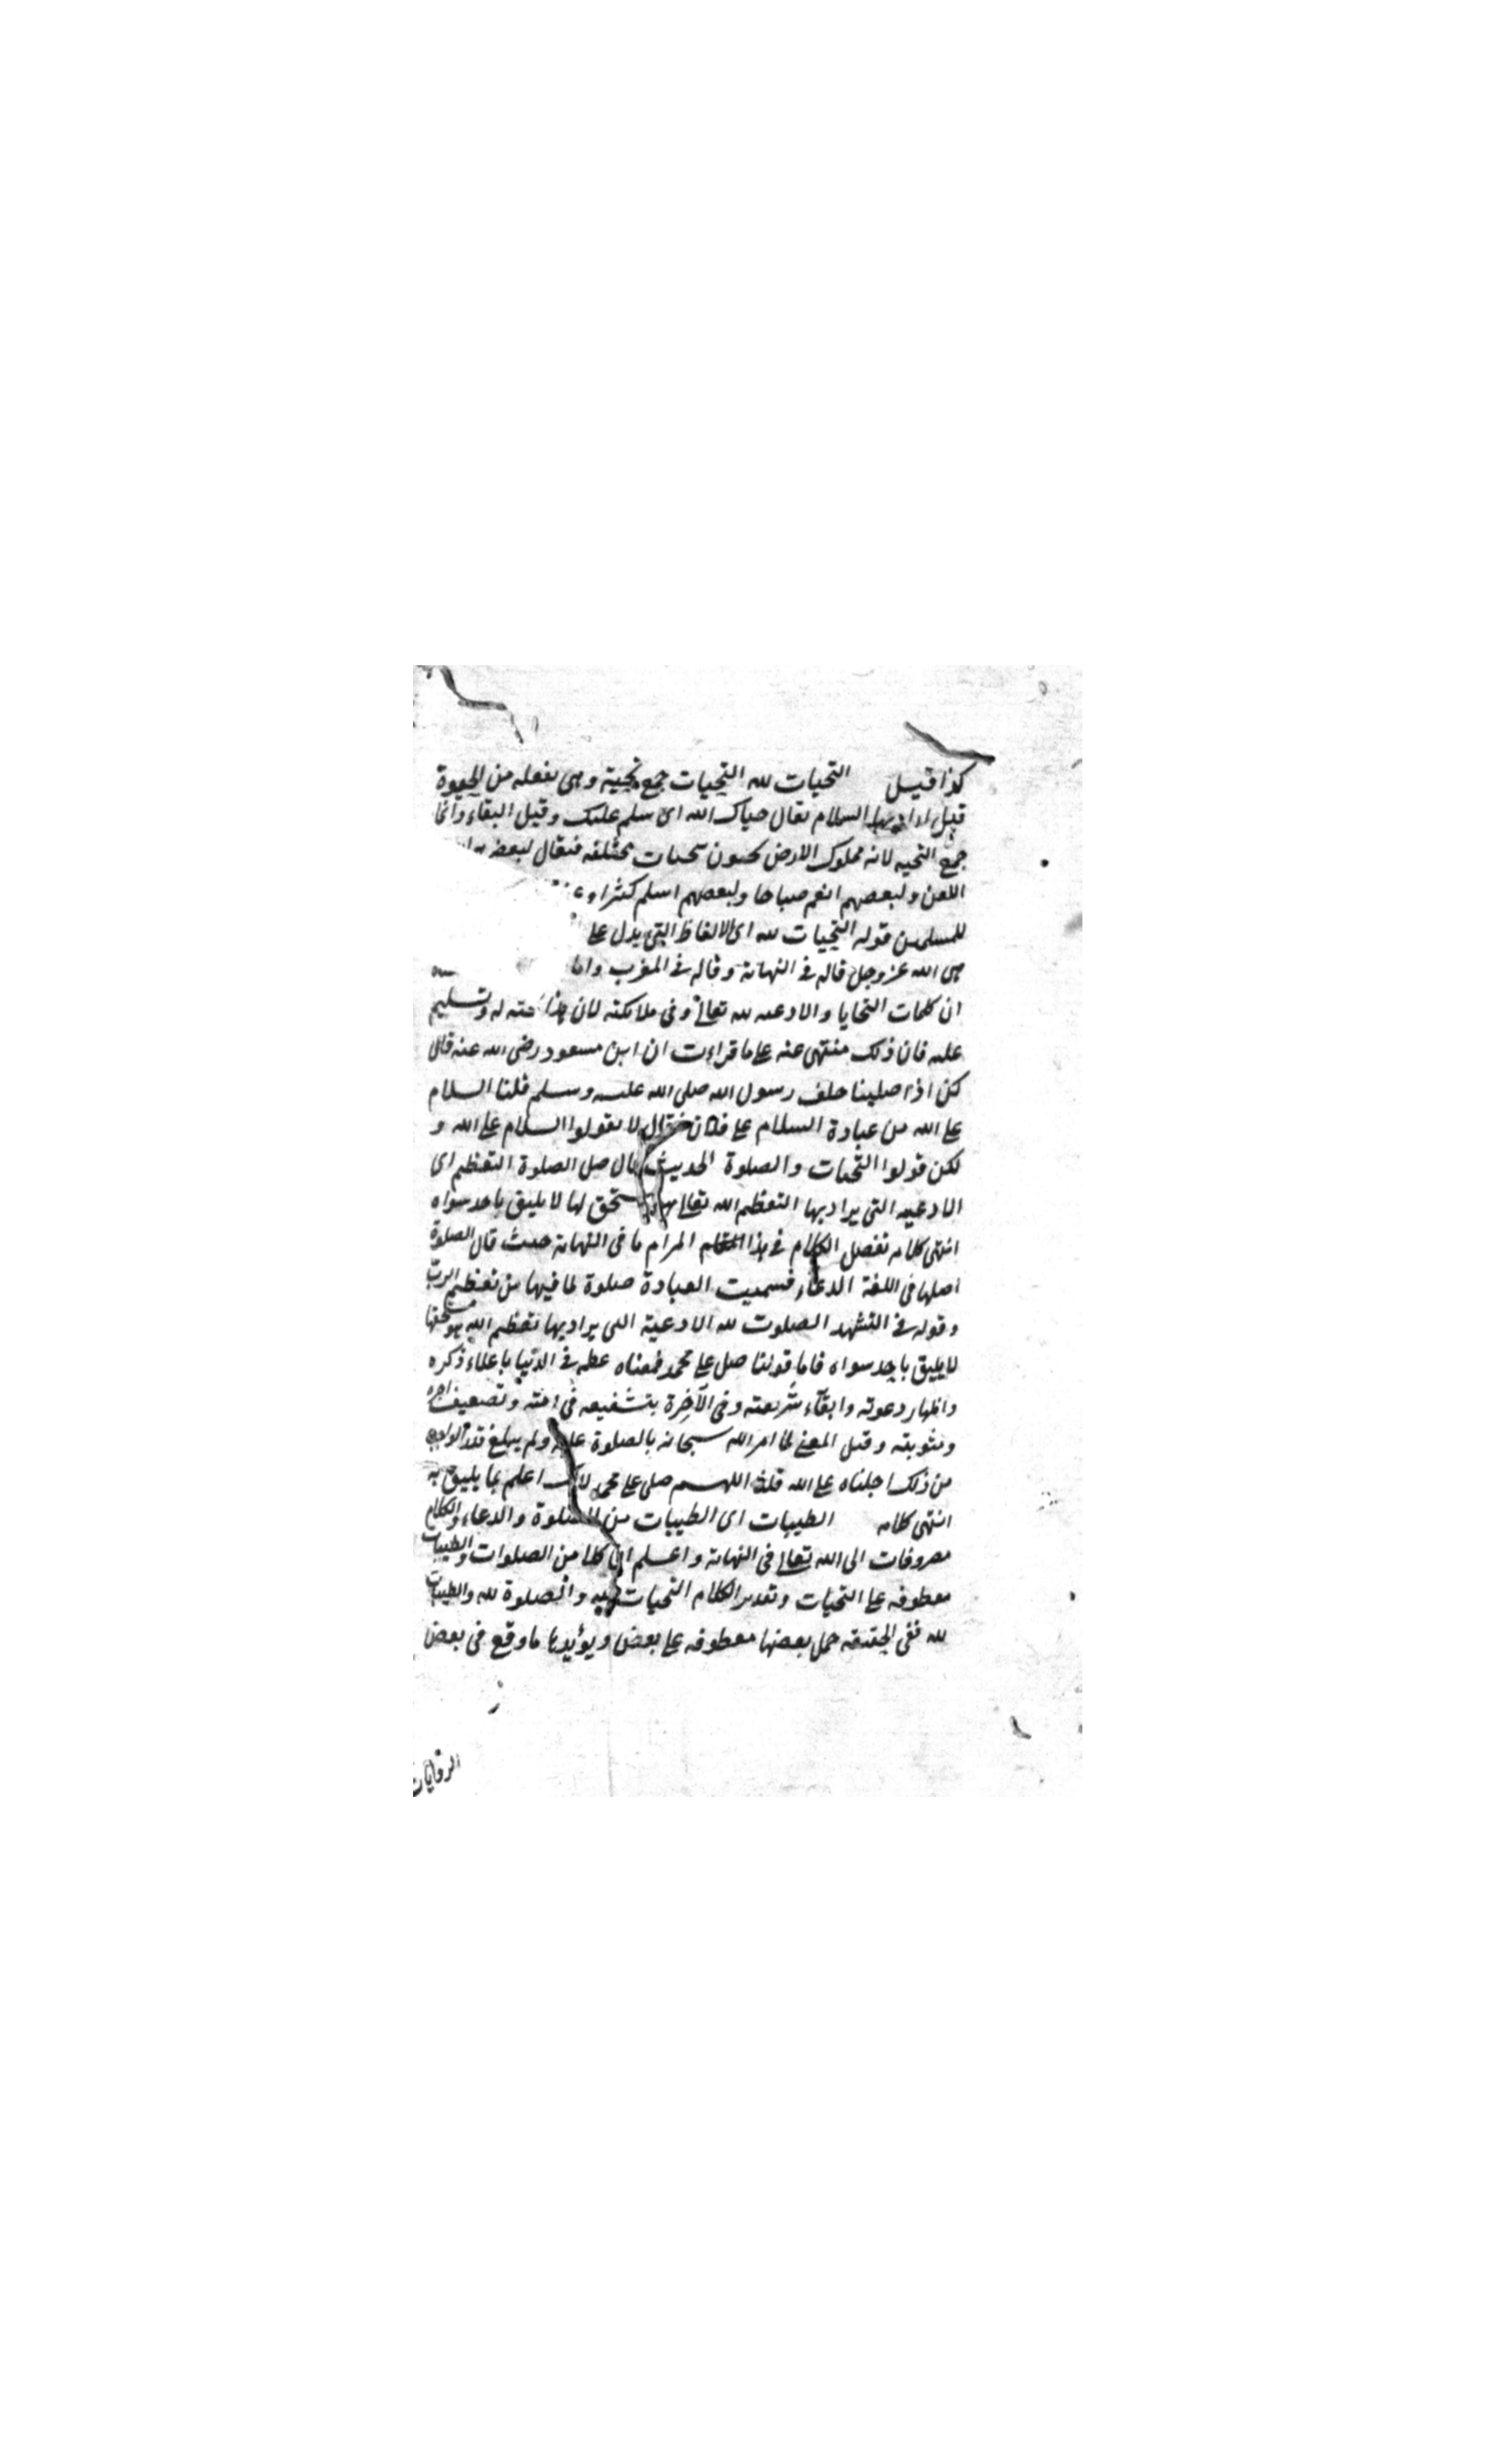 كذا قيل التحيات لله التحيات جمع تحية وهى تفعله من الحيوة
قيل اراد بها السلام يقال حياك الله اى سلم عليك وقيل البقاء وانما
جمع التحيه لانه مملوك الارض يحيون بتحيات مختلفه فيقال لبعضهم
اللعن ولبعضهم انعم صباحا ولبعضهم اسلم كثيرا
للمسلمين قوله التحيات لله اى الالفاظ التى يدل على
هى الله عز وجل قاله فى النهاية وقاله فى المغرب واما
ان كلمات التحايا والادعيه لله تعالى وفى ملائكته لان هذا تحيته له وتسليم
عليه فان ذلك منتهى عنه على ما قراءت ان ابن مسعود رضى الله عنه قال
كن اذا صلينا خلف رسول الله صلى الله عليه وسلم قلنا السلام
على الله من عبادة السلام على فلان فقال لا تقولوا السلام على الله و
لكن قولوا التحيات والصلوة الحديث قال صل الصلوة التعظيم اى
الادعيه التى يراد بها التعظيم الله تعالى مستحق لها لا يليق باحد سواه
انتهى كلامه تفصل الكلام فى هذا المقام المرام ما فى النهاية حيث قال الصلوة
اصلها فى اللغة الدعاء فسميت العبادة صلوة لما فيها من تعظيم الرب
وقوله فى التشهد الصلوت لله الادعية التى يراد بها تعظيم الله هو مستحقها
لا يليق باحد سواه فاما قولنا صل على محمد فمعناه عظمه فى الدنيا باعلاء ذكره
واظهار دعوته وابقآء شريعته وفى الآخرة بتشفيعه فى امته وتضعيف اجره
ومثوبته وقيل المعنى لما امر الله سبحانه بالصلوة عليه ولم يبلغ قدر الواجب
من ذلك اجلناه على الله قلنا اللهم صلى على محمد لانك اعلم بما يليق به
انتهى كلامه الطيبات اى الطيبات من الصلوة والدعاء والكلام
مصروفات الى الله تعالى فى النهاية واعلم ان كلا من الصلوات والطيبات
معطوفه على التحيات وتقدير الكلام التحيات لله والصلوة لله والطيبات
لله ففى الحقيقه جمل بعضها معطوفه على بعض ويؤيدها ما وقع فى بعض
الروايات